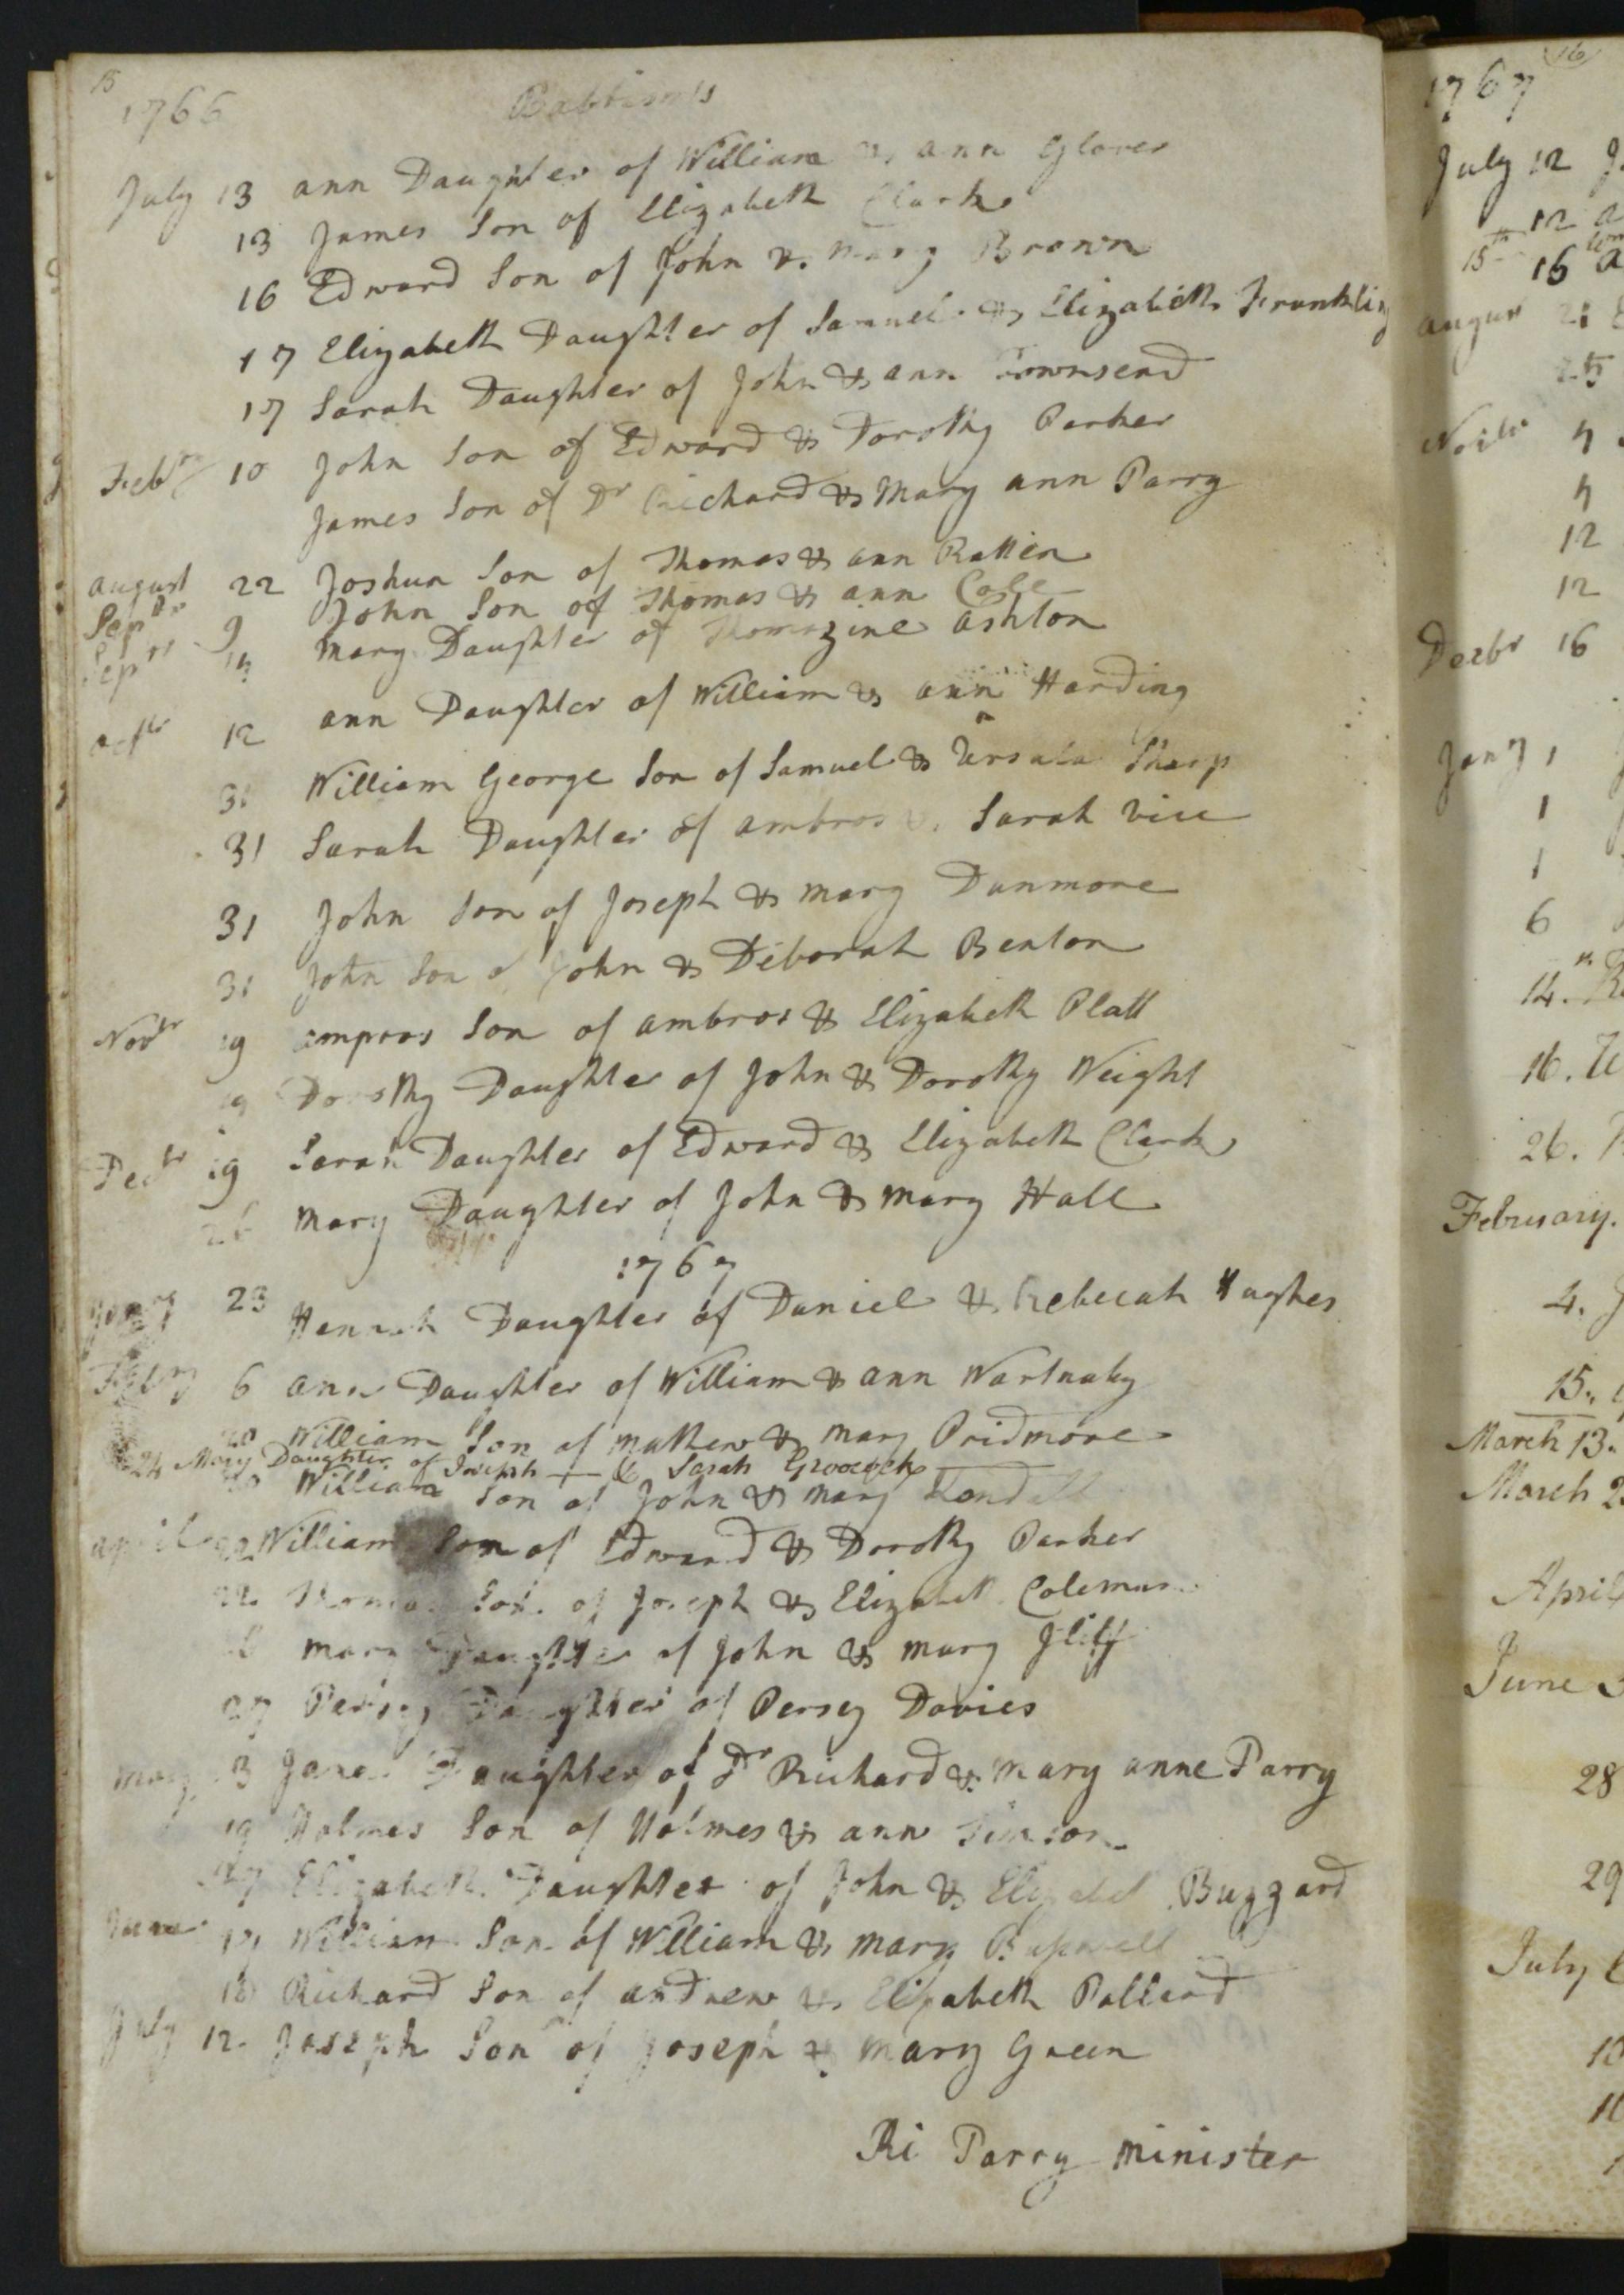 15
1766 Babtisms
July 13 ann Daughter of William & ann Glover
13 James Son of Elizabeth Clark
16 Edward Son of John & Mary Brown
17 Elizabeth Daughter of Samuel & Elizabeth Franklin
17 Sarah Daughter of John & ann Townsend
Febry 10 John Son of Edward & Dorothy Parker
James Son of Dr Richard & Mary ann Parry
august 22 Joshua Son of Thomas & ann Ratten
Sepbr 9 John Son of Thomas & ann Cole
Sepbr 14 Mary Daughter of Thomazine ashton
octbr 12 ann Daughter of William & ann Harding
31 William George Son of Samuel & Ursula Sharp
31 Sarah Daughter of ambros & Sarah vice
31 John Son of Joseph & mary Dunmore
31 John Son of John & Deborah Benton
Novbr 19 ampros Son of ambros & Elizabeth Platt
19 Dorothy Daughter of John & Dorothy Weight
Decbr 19 Sarah Daughter of Edward & Elizabeth Clark
26 Mary Daughter of John & mary Hall
1767
Jany 23 Hannah Daughter of Daniel & Rebecah Hughes
Febry 6 ann Daughter of William & ann Wartnaby
20 William Son of mathew & mary Pridmore
24 Mary Daughter of Joseph & Sarah Groocock
William Son of John & mary
april 22 William Son of Edward & Dorothy Parker
22 Thomas Son of Joseph & Elizabeth Coleman
mary Daughter of John & mary Jliff
27 Persey Daughter of Persey Davies
may 3 Jane Daughter of Dr Richard & mary anne Parry
19 Holmes Son of Holmes & ann Simson
27 Elizabeth Daughter of John & Elizabeth Buzzard
June William Son of William & mary
18 Richard Son of andrew & Elizabeth Pollard
July 12 Joseph Son of Joseph & mary Green
Ri Parry minister
16
1767
July 12
12
15th 16
august 21
25
Novbr
12
12
Decbr 16
Jany 1
1
1
6
14.
16.
26.
February.
4.
15.
March 13.
March 2
April
June 3
28
29
July